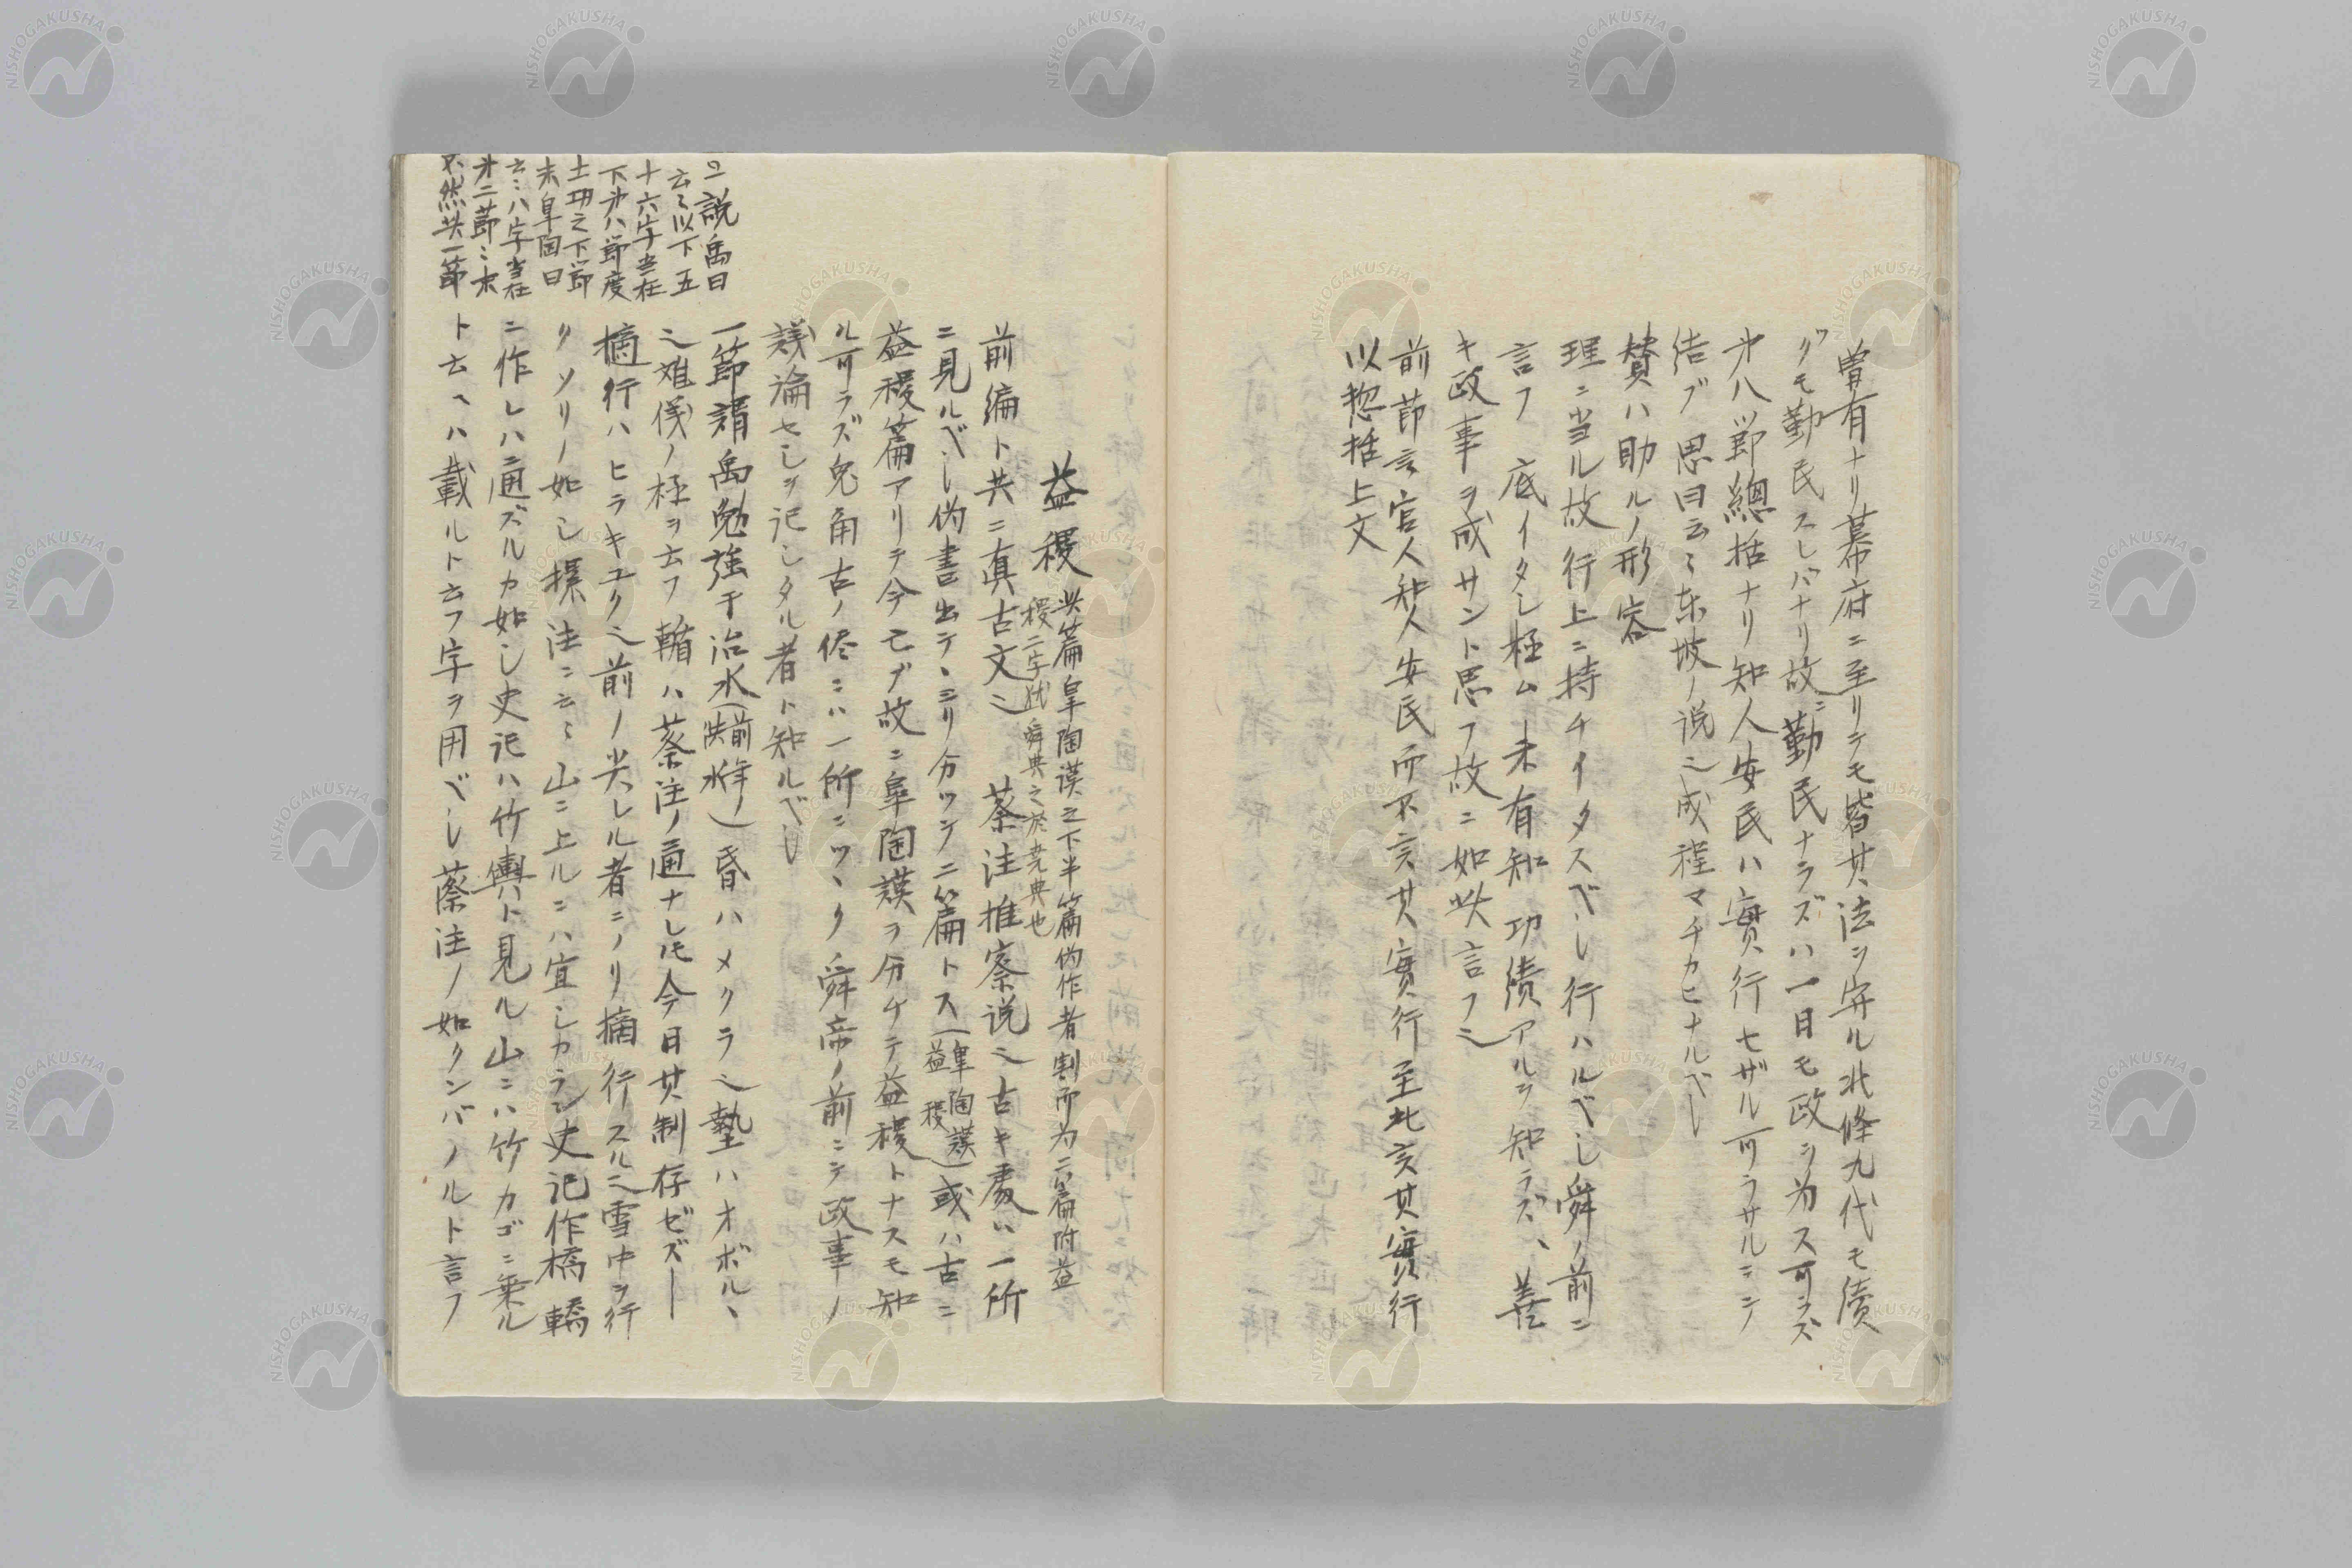 曽有ナリ幕府ニ至リテモ皆其法ヲ守ル北條九代モ績
グモ勤民スレバナリ故ニ勤民ナラズハ一日モ政ヲ為ス可ラズ
才八節總括ナリ知人安民ハ實行セザル可ラサルニシテ
結ブ 思曰云〻東坡ノ说也成程マチカヒナルベシ
賛ハ助ルノ形容
理ニ当ル故行上ニ持チイタスベシ行ハルベシ舜ノ前ニ
言フ 底イタシ極ム 未有知 功績アルヲ知ラズ、善
キ政事ヲ成サント思フ故ニ如此言フ也
前節言官人知人安民而不言其實行至此言其實行
以惣括上文
益稷 此篇皐陶謨之下半篇偽作者割而为二篇附益
稷二字猶舜典之於尭典也
前編ト共ニ真古文也 蔡注推察说也古キ處ハ一所
ニ見ルベシ偽書出テヽヨリ分ツテ二篇トス(皐陶謨 益稷)或ハ古ニ
益稷篇アリテ今モデ故ニ皐陶謨ヲ分チテ益稷トナスモ知
ル可ラズ兎角古ノ侭ニハ一所ニツヽク舜帝ノ前ニテ政事ノ
議論セシヲ記シタル者ト知ルベシ
一節 謂禹勉強于治水(洪水前ノ)昏ハメクラ也墊ハオボルヽ
之难儀ノ極ヲ云フ 輴ハ蔡注ノ通ナレ𪜈今日其制存ゼズ
樏行ハヒラキユク也前ノ尖レル者ニノリ樏行スル也雪中ヲ行
クソリノ如シ樏注ニ云〻山ニ上ルニハ宜シカラン史記作橋 轎
ニ作レハ通ズルカ如シ史記ハ竹輿ト見ル山ニハ竹カゴニ乗ル
ト云ヘハ載ルト云フ字ヲ用ベシ蔡注ノ如クンバノルト言フ
一説禹曰
云〻以下五
十六字当在
下才八節度
土功之下節
末皐陶曰
云〻八字当在
才二節之末
不然共一節